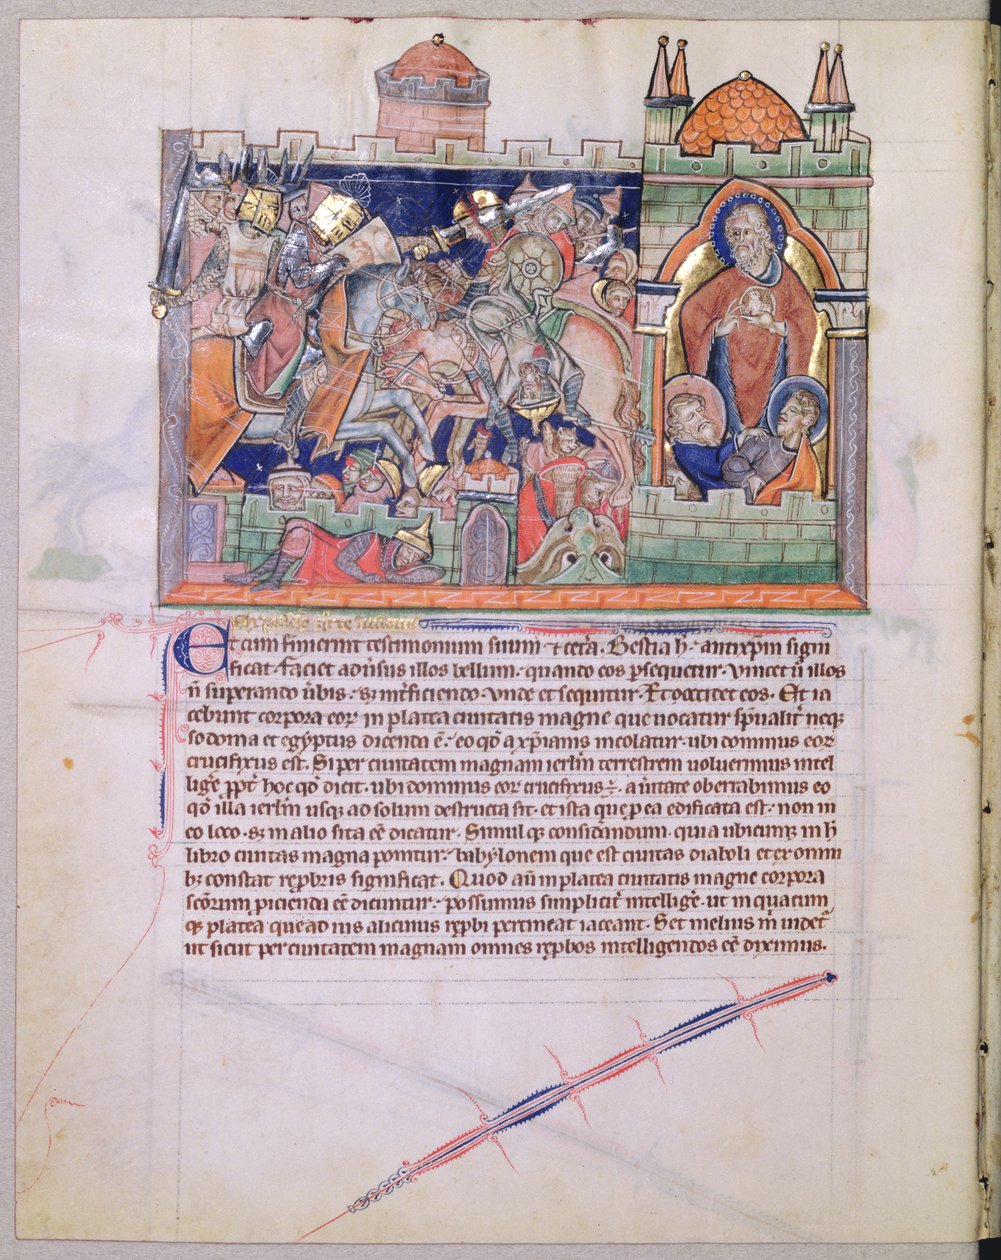 Et cum finierint testimonium suum · ⁊ cetͣa. Bestia ħ · antixp̄m sign
ficat · faciet adūsus illos bellum. quando eos ꝑsequetur · Vincet ⁊ illos
n̄ superando ūbis · sꝫ int̄ficiendo · Vnde et sequitur · Et occidet eos · Et ia
cebunt corpora eoꝝ in platea ciuitatis magne que uocatur sp̄ualit̄
sodoma et egyptus dicenda ē · eo qd̓ a xp̄ianis incolatur · ubi dominus eoꝝ
crucifixus est. Si per ciuitatem magnam ierlm̄ terrestrem uoluerimus intel
ligͤe ꝓpt̓ hoc qd̓ dicit · ubi dominus eoꝝ crucifixus · a uitate oberrabimus eo
qd̓ illa ierlm̄ usqꝫ ad solum destructa sit · et ista que p̄ea edificata est · non in
eo loco · sꝫ in alio sita eē dicatur · Simul qꝫ considandum · quia ubicumqꝫ in ħ
libro ciuitas magna ponitur · babylonem que est ciuitas diaboli et ex omni
bꝫ constat rep̱bris significat. Quod aū in platea ciuitatis magne corpora
sc̄orum ꝓicienda eē dicuntur · possumus simplicit̄ intelligͤe · ut in quacum
qꝫ platea que ad ius alicuius rep̱bi pertineat iaceant. Set melius m̄ uidet̄
ut sicut per ciuitatem magnam omnes rep̱bos intelligendos eē diximus.